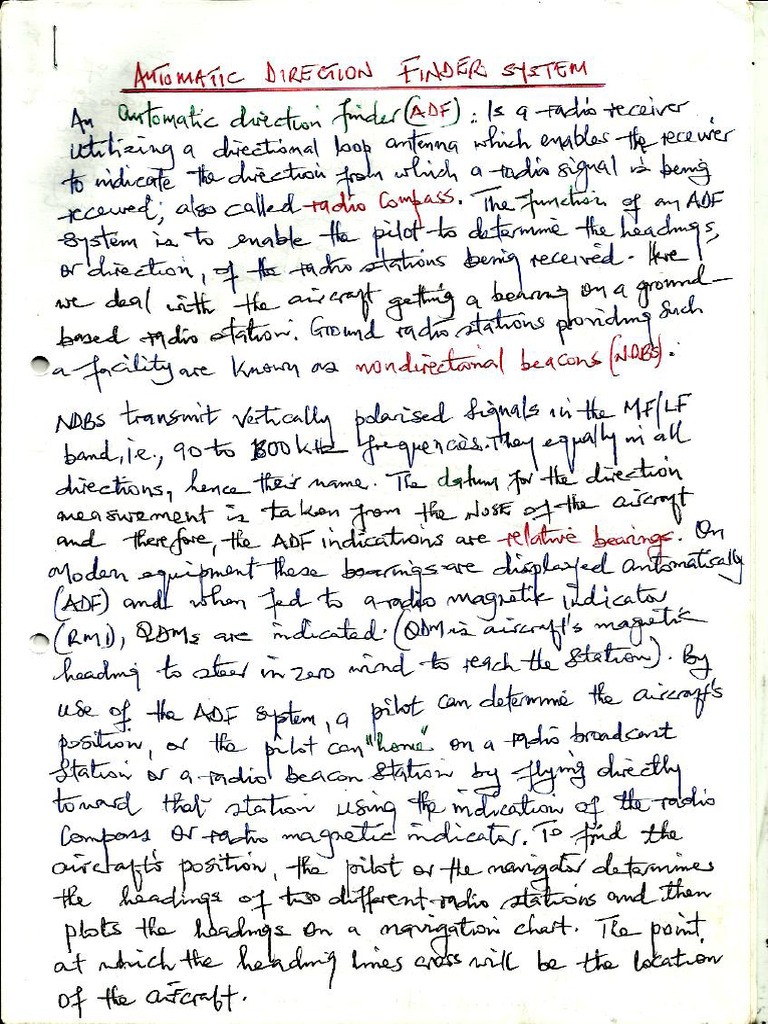 AUTOMATIC DIRECTION FINDER SYSTEM
An automatic direction finder (ADF): Is a radio receiver
utilizing a directional loop antenna which enables the receiver
to indicate the direction from which a radio signal is being
received; also called radio compass. The function of an ADF
system is to enable the pilot to determine the headings,
or direction, of the radio stations being received. Here
we deal with the aircraft getting a bearing on a ground-
based radio station. Ground radio stations providing such
a facility are known as nondirectional beacons (NDBs).
NDBs transmit vertically polarised signals in the MF/LF
band, i.e., 90 to 1800 kHz frequencies. They equally in all
directions, hence their name. The datum for the direction
measurement is taken from the NOSE of the aircraft
and therefore, the ADF indications are relative bearings. On
modern equipment these bearings are displayed automatically
(ADF) and when fed to a radio magnetic indicator
(RMI), QDMs are indicated. (QDM is aircraft's magnetic
heading to steer in zero wind to reach the station). By
use of the ADF system, a pilot can determine the aircraft's
position, or the pilot can "home" on a radio broadcast
station or a radio beacon station by flying directly
toward that station using the indication of the radio
compass or radio magnetic indicator. To find the
aircraft's position, the pilot or the navigator determines
the headings of two different radio stations and then
plots the headings on a navigation chart. The point
at which the heading lines cross will be the location
of the aircraft.